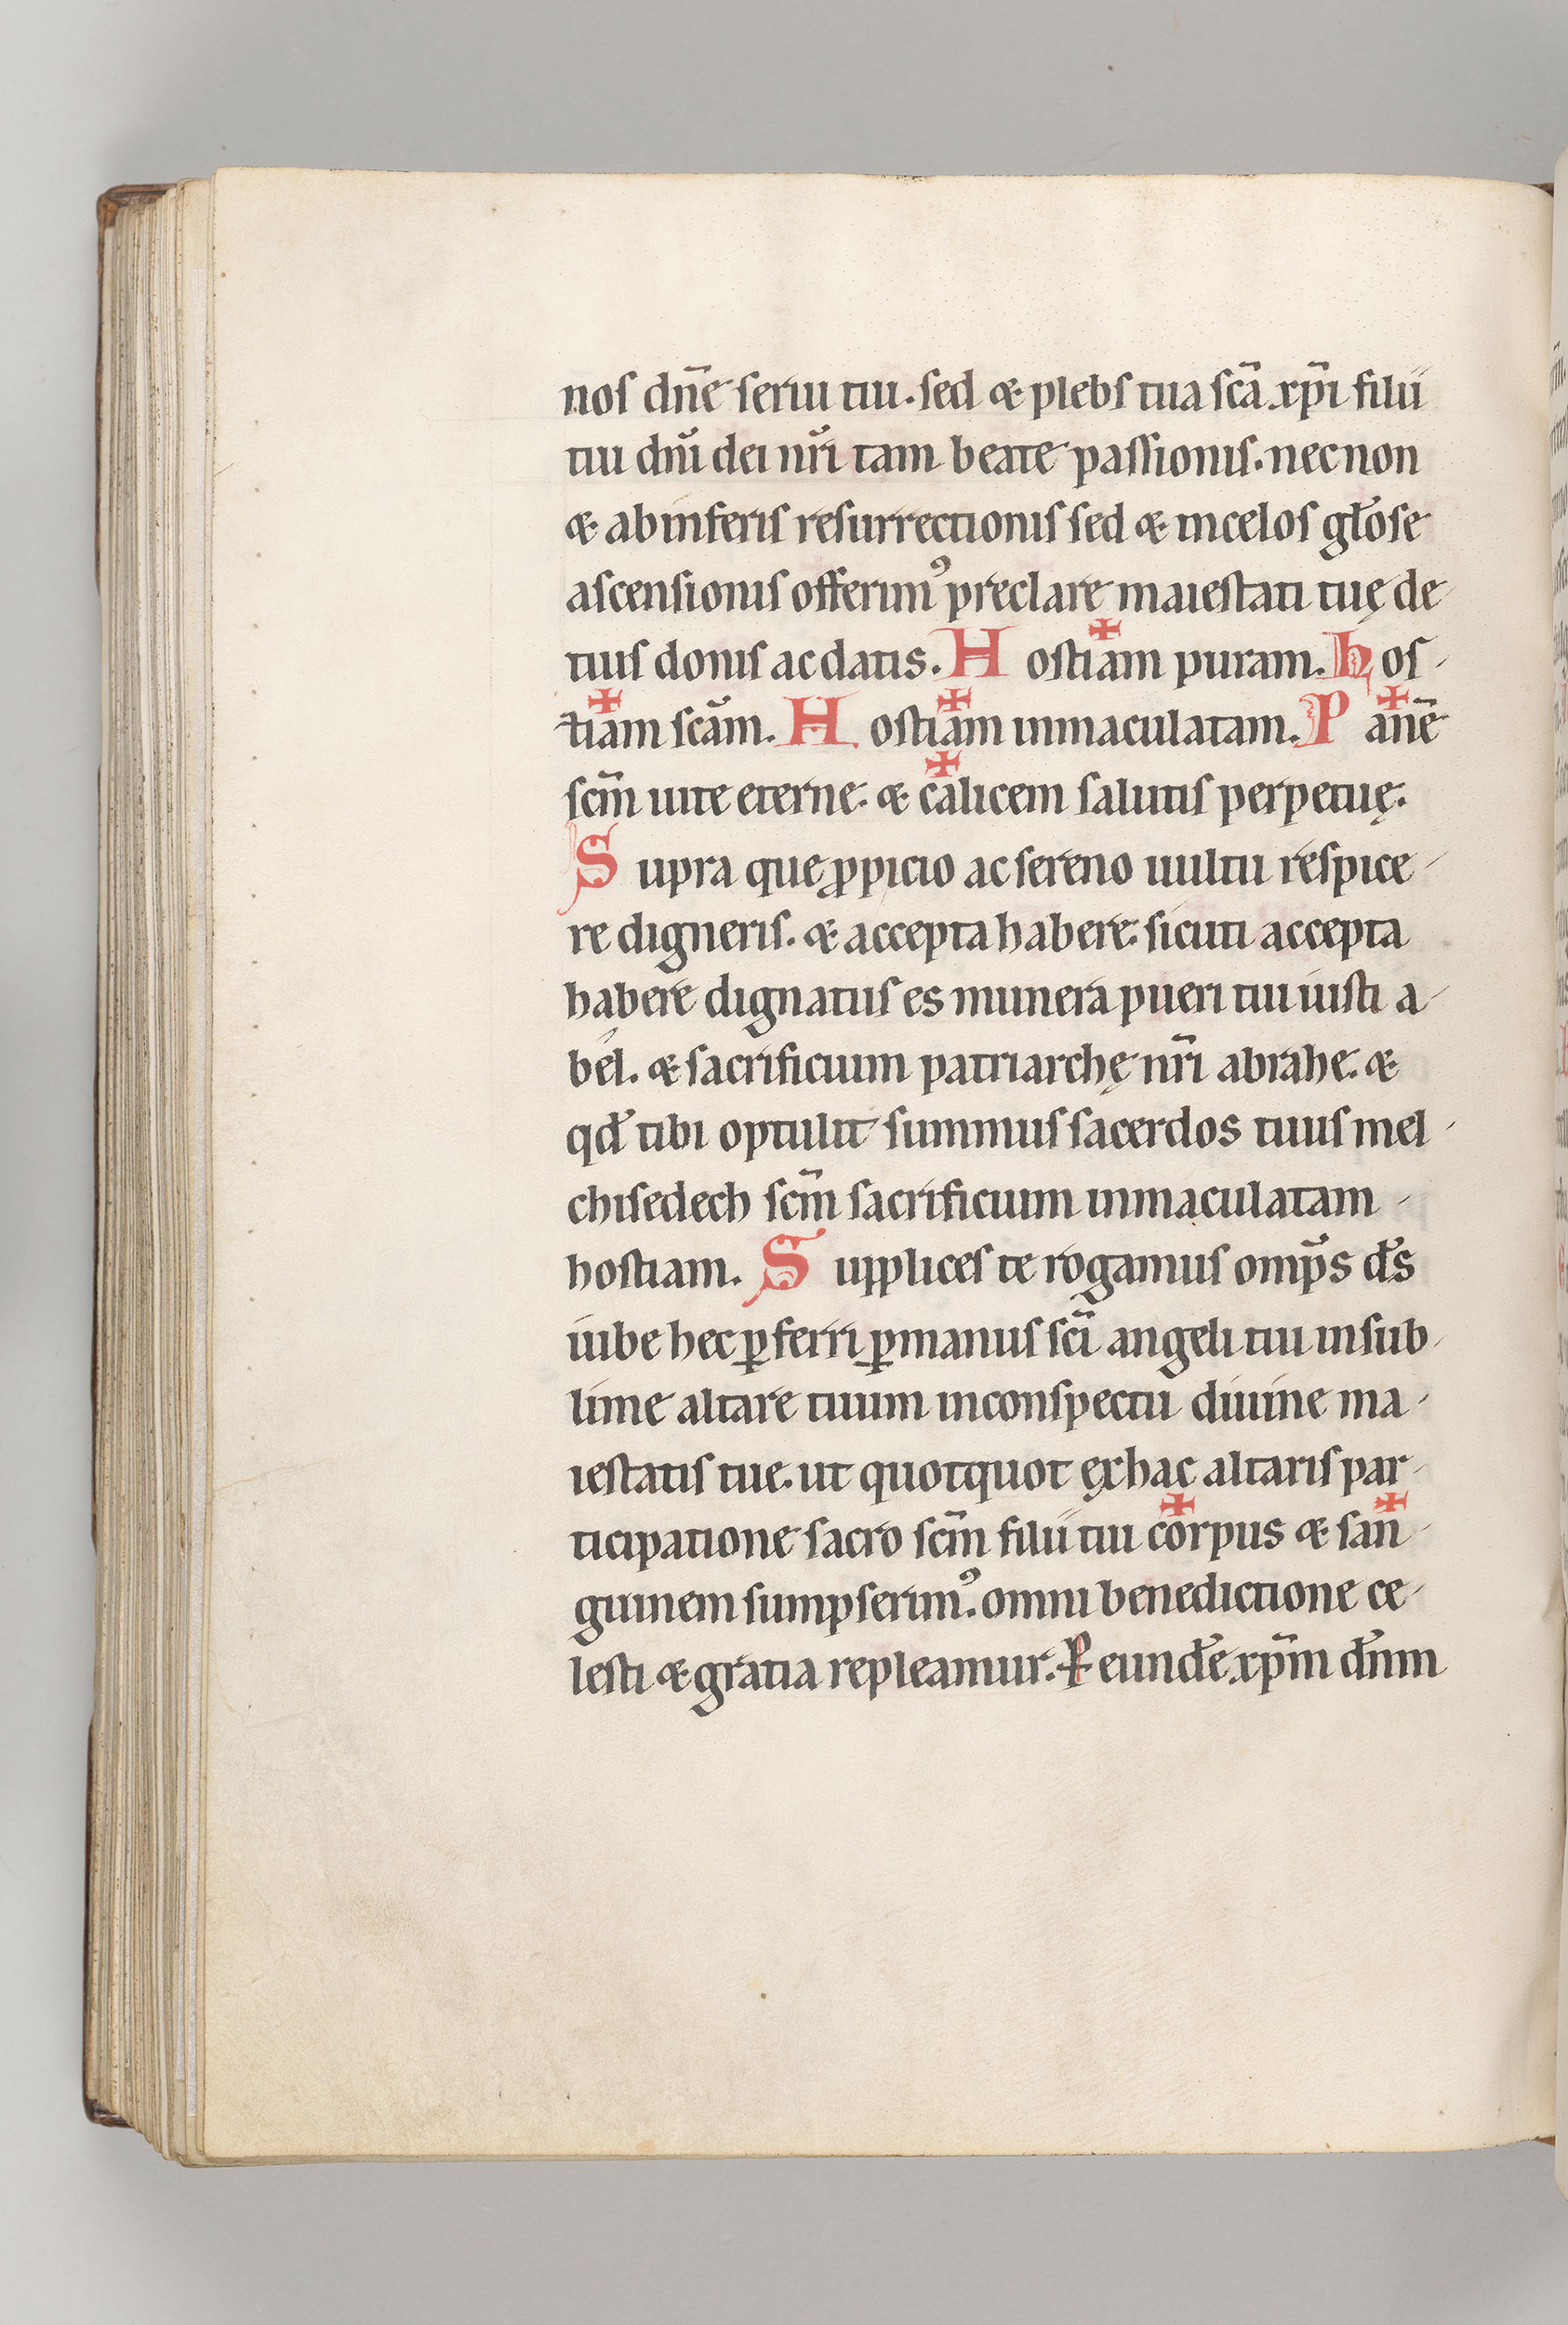 nos dn̄e serui tui. sed & plebs tua scā xp̄i filii
tui dn̄i dei nr̄i tam beate passionis. necnon
& abinferis resurrectionis sed & incelos gl̄ose
ascensionis offerimꝰ preclare maiestati tuę de
tuis donis ac datis. H osti✠am puram. h os
ti✠am scā̄m. H osti✠am inmaculatam. P ✠anē
scm̄ uite eterne. & ca✠licem salutis perpetuę.
S upra que ꝓpicio ac sereno uultu respice
re digneris. & accepta habere. sicuti accepta
habere dignatus es munera pueri tui iusti a
bel. & sacrificium patriarchę nr̄i abrahe. &
qd̄ tibi optulit summus sacerdos tuus mel
chisedech scm̄ sacrificium inmaculatam
hostiam. S upplices te rogamus omp̄s d̄s
iube hec ꝑferri ꝑmanus sci̅ angeli tui insub
lime altare tuum inconspectu diuine ma
iestatis tue. ut quotquot ęxhac altaris par
ticipatione sacro scm̄ filii tui co✠rpus & sa✠n
guinem sumpserimꝰ. omni benedictione ce
lesti & gratia repleamur. P eund̄e xp̄m d̄nm